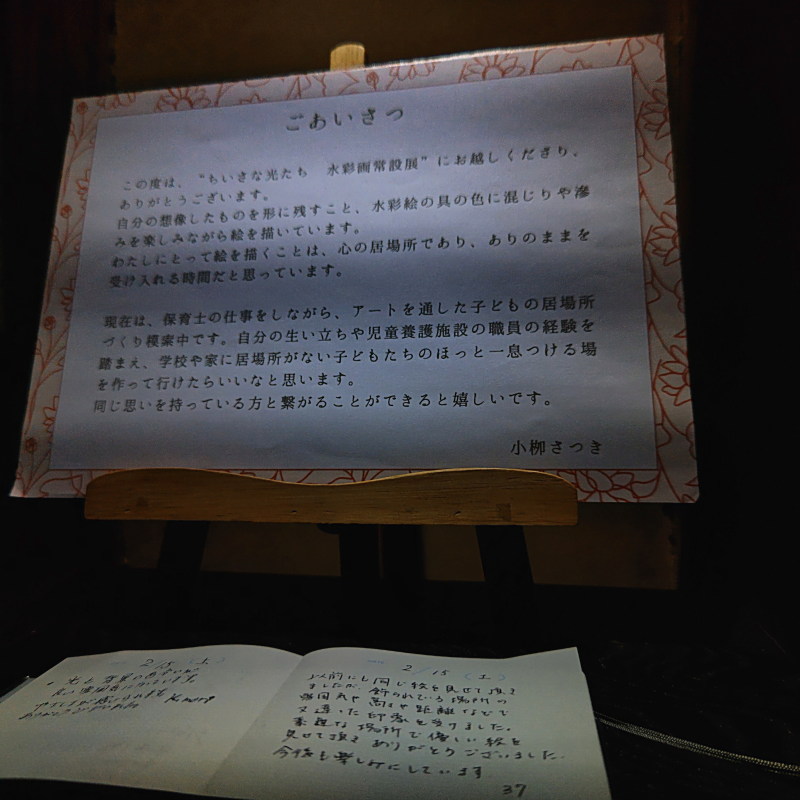 ごあいさつ
この度は、“ちいさな光たち　水彩画常設展”にお越しくださり、
ありがとうございます。
自分の想像したものを形に残すこと、水彩絵の具の色に混じりや滲
みを楽しみながら絵を描いています。
わたしにとって絵を描くことは、心の居場所であり、ありのままを
受け入れる時間だと思っています。
現在は、保育士の仕事をしながら、アートを通した子どもの居場所
づくり模索中です。自分の生い立ちや児童養護施設の職員の経験を
踏まえ、学校や家に居場所がない子どもたちのほっと一息つける場
を作って行けたらいいなと思います。
同じ思いを持っている方と繋がることができると嬉しいです。
小栁さつき
2/15（土）
ありがとうございました
2/15（土）
以前にも同じ絵を見せて頂き
ましたが、飾られている場所の
雰囲気や高さや距離などで
又違った印象を受けました。
素敵な場所で優しい絵を
見せて頂き ありがとうございました。
今後も楽しみにしています
37